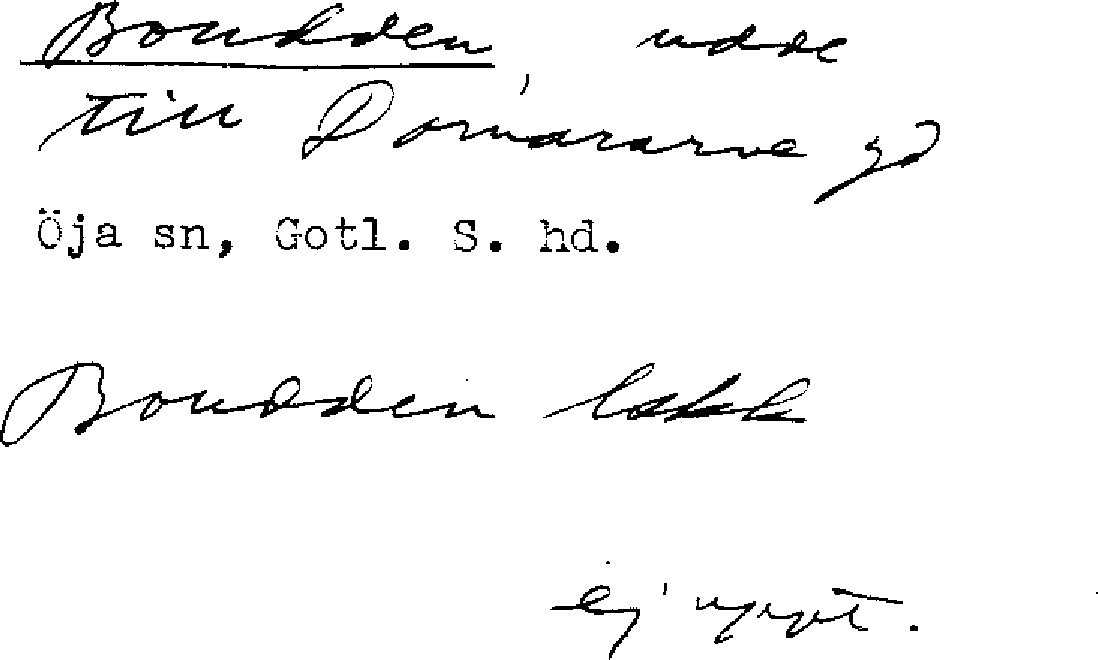 Boudden, udde
till Domararve gd
Öja sn, Gotl. S. hd.
Boudden lakk
ej uppt.